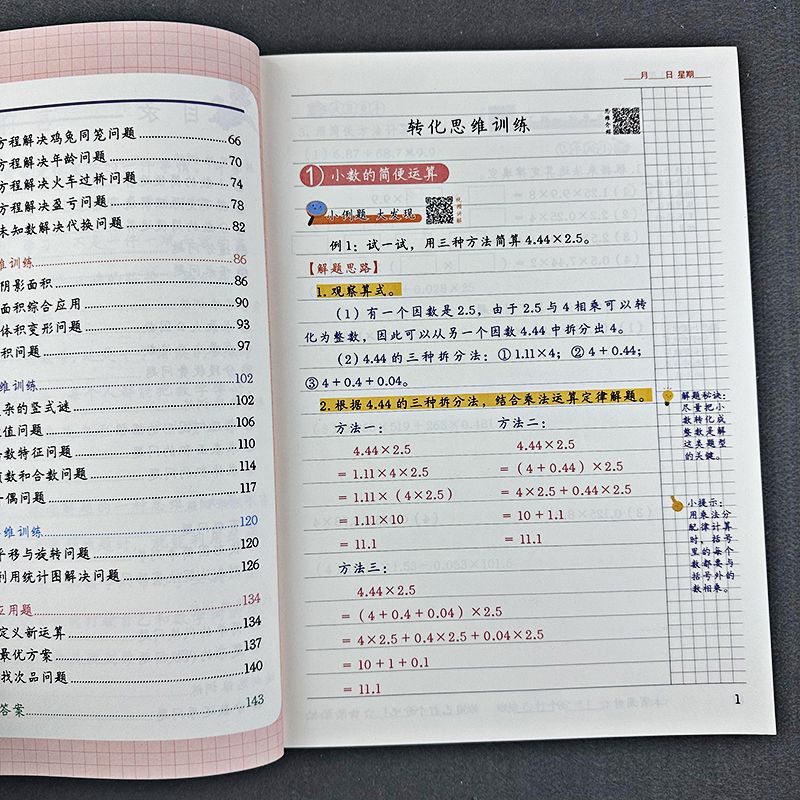 目录
方程解决鸡兔同笼问题 66
方程解决年龄问题 70
方程解决火车过桥问题 74
方程解决盈亏问题 78
未知数解决代换问题 82
维训练 86
阴影面积 90
面积综合应用 90
体积变形问题 93
积问题 97
维训练 102
杂的竖式谜 102
值问题 106
数特征问题 110
数和合数问题 114
偶问题 117
维训练 120
平移与旋转问题 120
利用统计图解决问题 126
应用题 134
定义新运算 134
最优方案 137
找次品问题 140
答案 143
月 日 星期
转化思维训练
思维介绍
1 小数的简便运算
小例题 大发现
视频讲解
例1：试一试，用三种方法简算4.44×2.5。
【解题思路】
1.观察算式。
（1）有一个因数是2.5，由于2.5与4相乘可以转
化为整数，因此可以从另一个因数4.44中拆分出4。
（2）4.44的三种拆分法：①1.11×4；②4+0.44；
③4+0.4+0.04。
2.根据4.44的三种拆分法，结合乘法运算定律解题。
方法一：
4.44×2.5
=1.11×4×2.5
=1.11×（4×2.5）
=1.11×10
=11.1
方法二：
4.44×2.5
=（4+0.44）×2.5
=4×2.5+0.44×2.5
=10+1.1
=11.1
方法三：
4.44×2.5
=（4+0.4+0.04）×2.5
=4×2.5+0.4×2.5+0.04×2.5
=10+1+0.1
=11.1
解题秘诀：
尽量把小
数转化成
整数是解
这类题型
的关键。
小提示：
用乘法分
配律计算
时，括号
里的每个
数都要与
括号外的
数相乘。
1